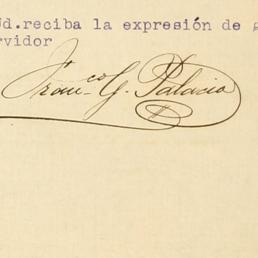 Ud.reciba la expresión de g
rvidor
Franco G. Palacio